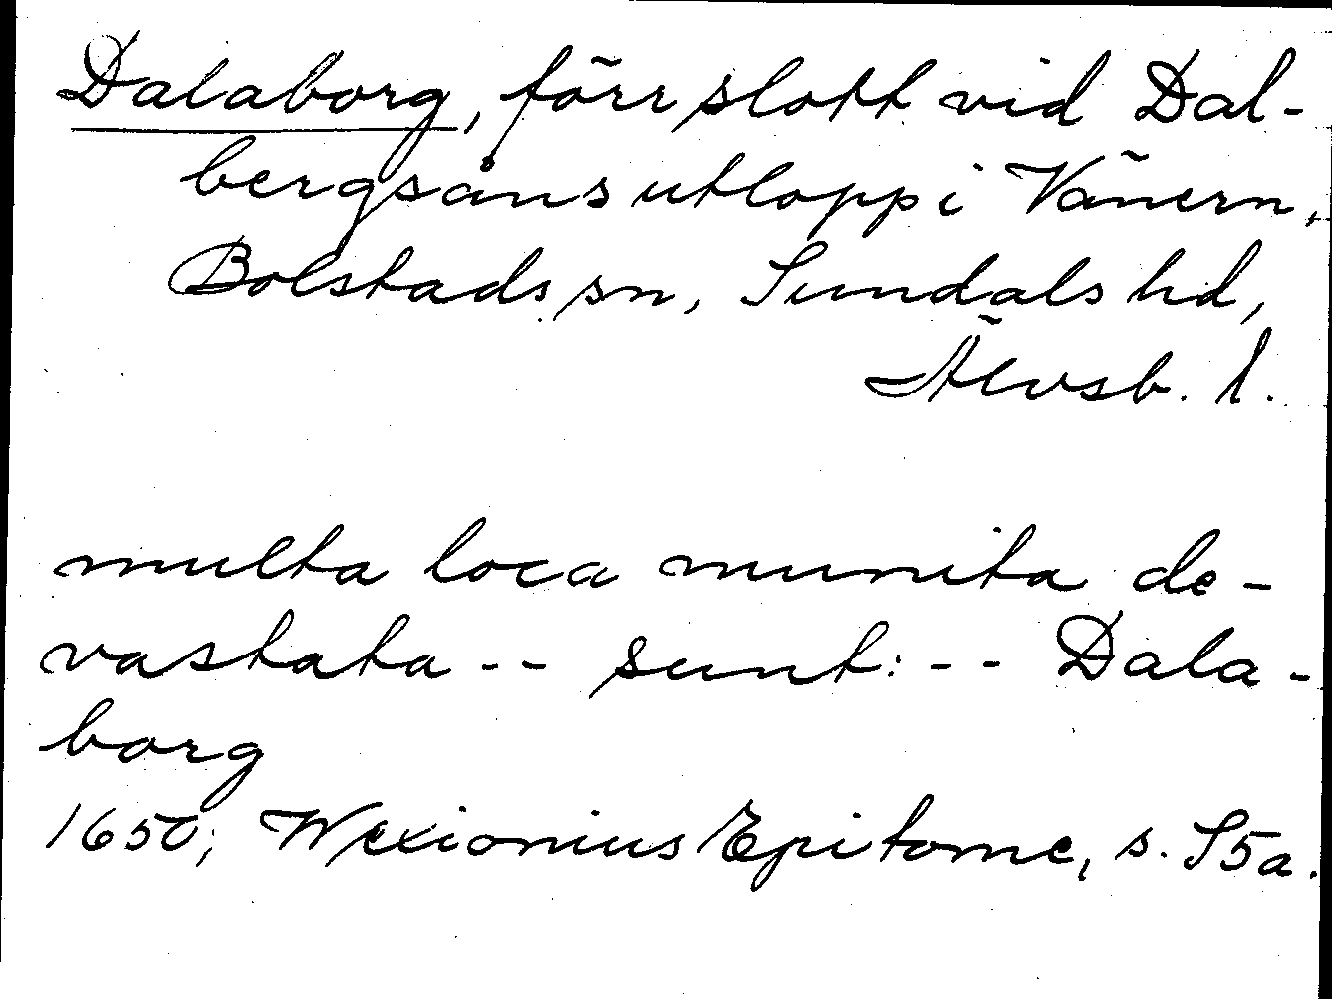 Dalaborg, förr slott vid Dal-
bergsåns utlopp i Vänern,
Bolstads sn, Sundals hd,
Älvsb. l.
multa loca munita de-
vastata -- sunt: -- Dala-
borg
1650; Wexionius Epitome, s. S5a.